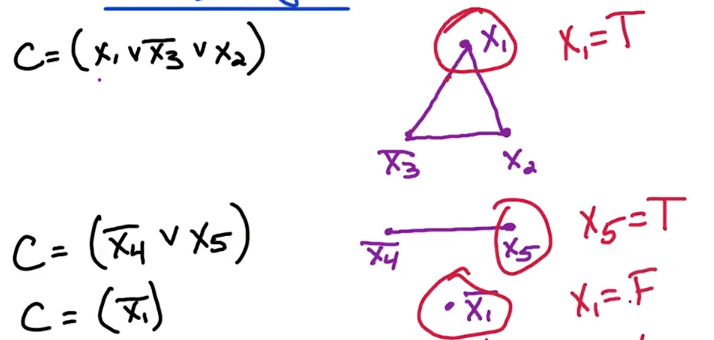 C = (x₁ ∨ x̅₃ ∨ x₂)
x₁
x₁ = T
x̅₃
x₂
C = (x̅₄ ∨ x₅)
x̅₄
x₅
x₅ = T
C = (x̅₁)
x̅₁
x₁ = F